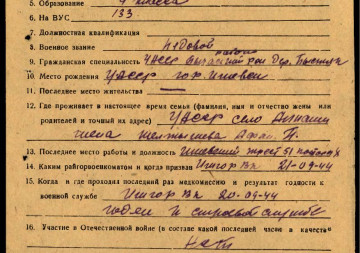 5. Образование 4 класса
6. На ВУС 133
7. Должностная квалификация
8. Военное звание рядовой
9. Гражданская специальность УАССР район Дер.
10. Место рождения УАССР гор.
11. Последнее место жительства —
12. Где проживает в настоящее время семья (фамилия, имя и отчество жены или
родителей и точный их адрес) УАССР село
13. Последнее место работы и должность трест 51
14. Каким райгорвоенкоматом и когда призван Ижгор Вк 21-09-44
15. Когда и где проходил последний раз медкомиссию и результат годности к
военной службе Ижгор Вк 20-09-44
годен к строевой службе
16. Участие в Отечественной войне (в составе какой последней части в качеств
Нет